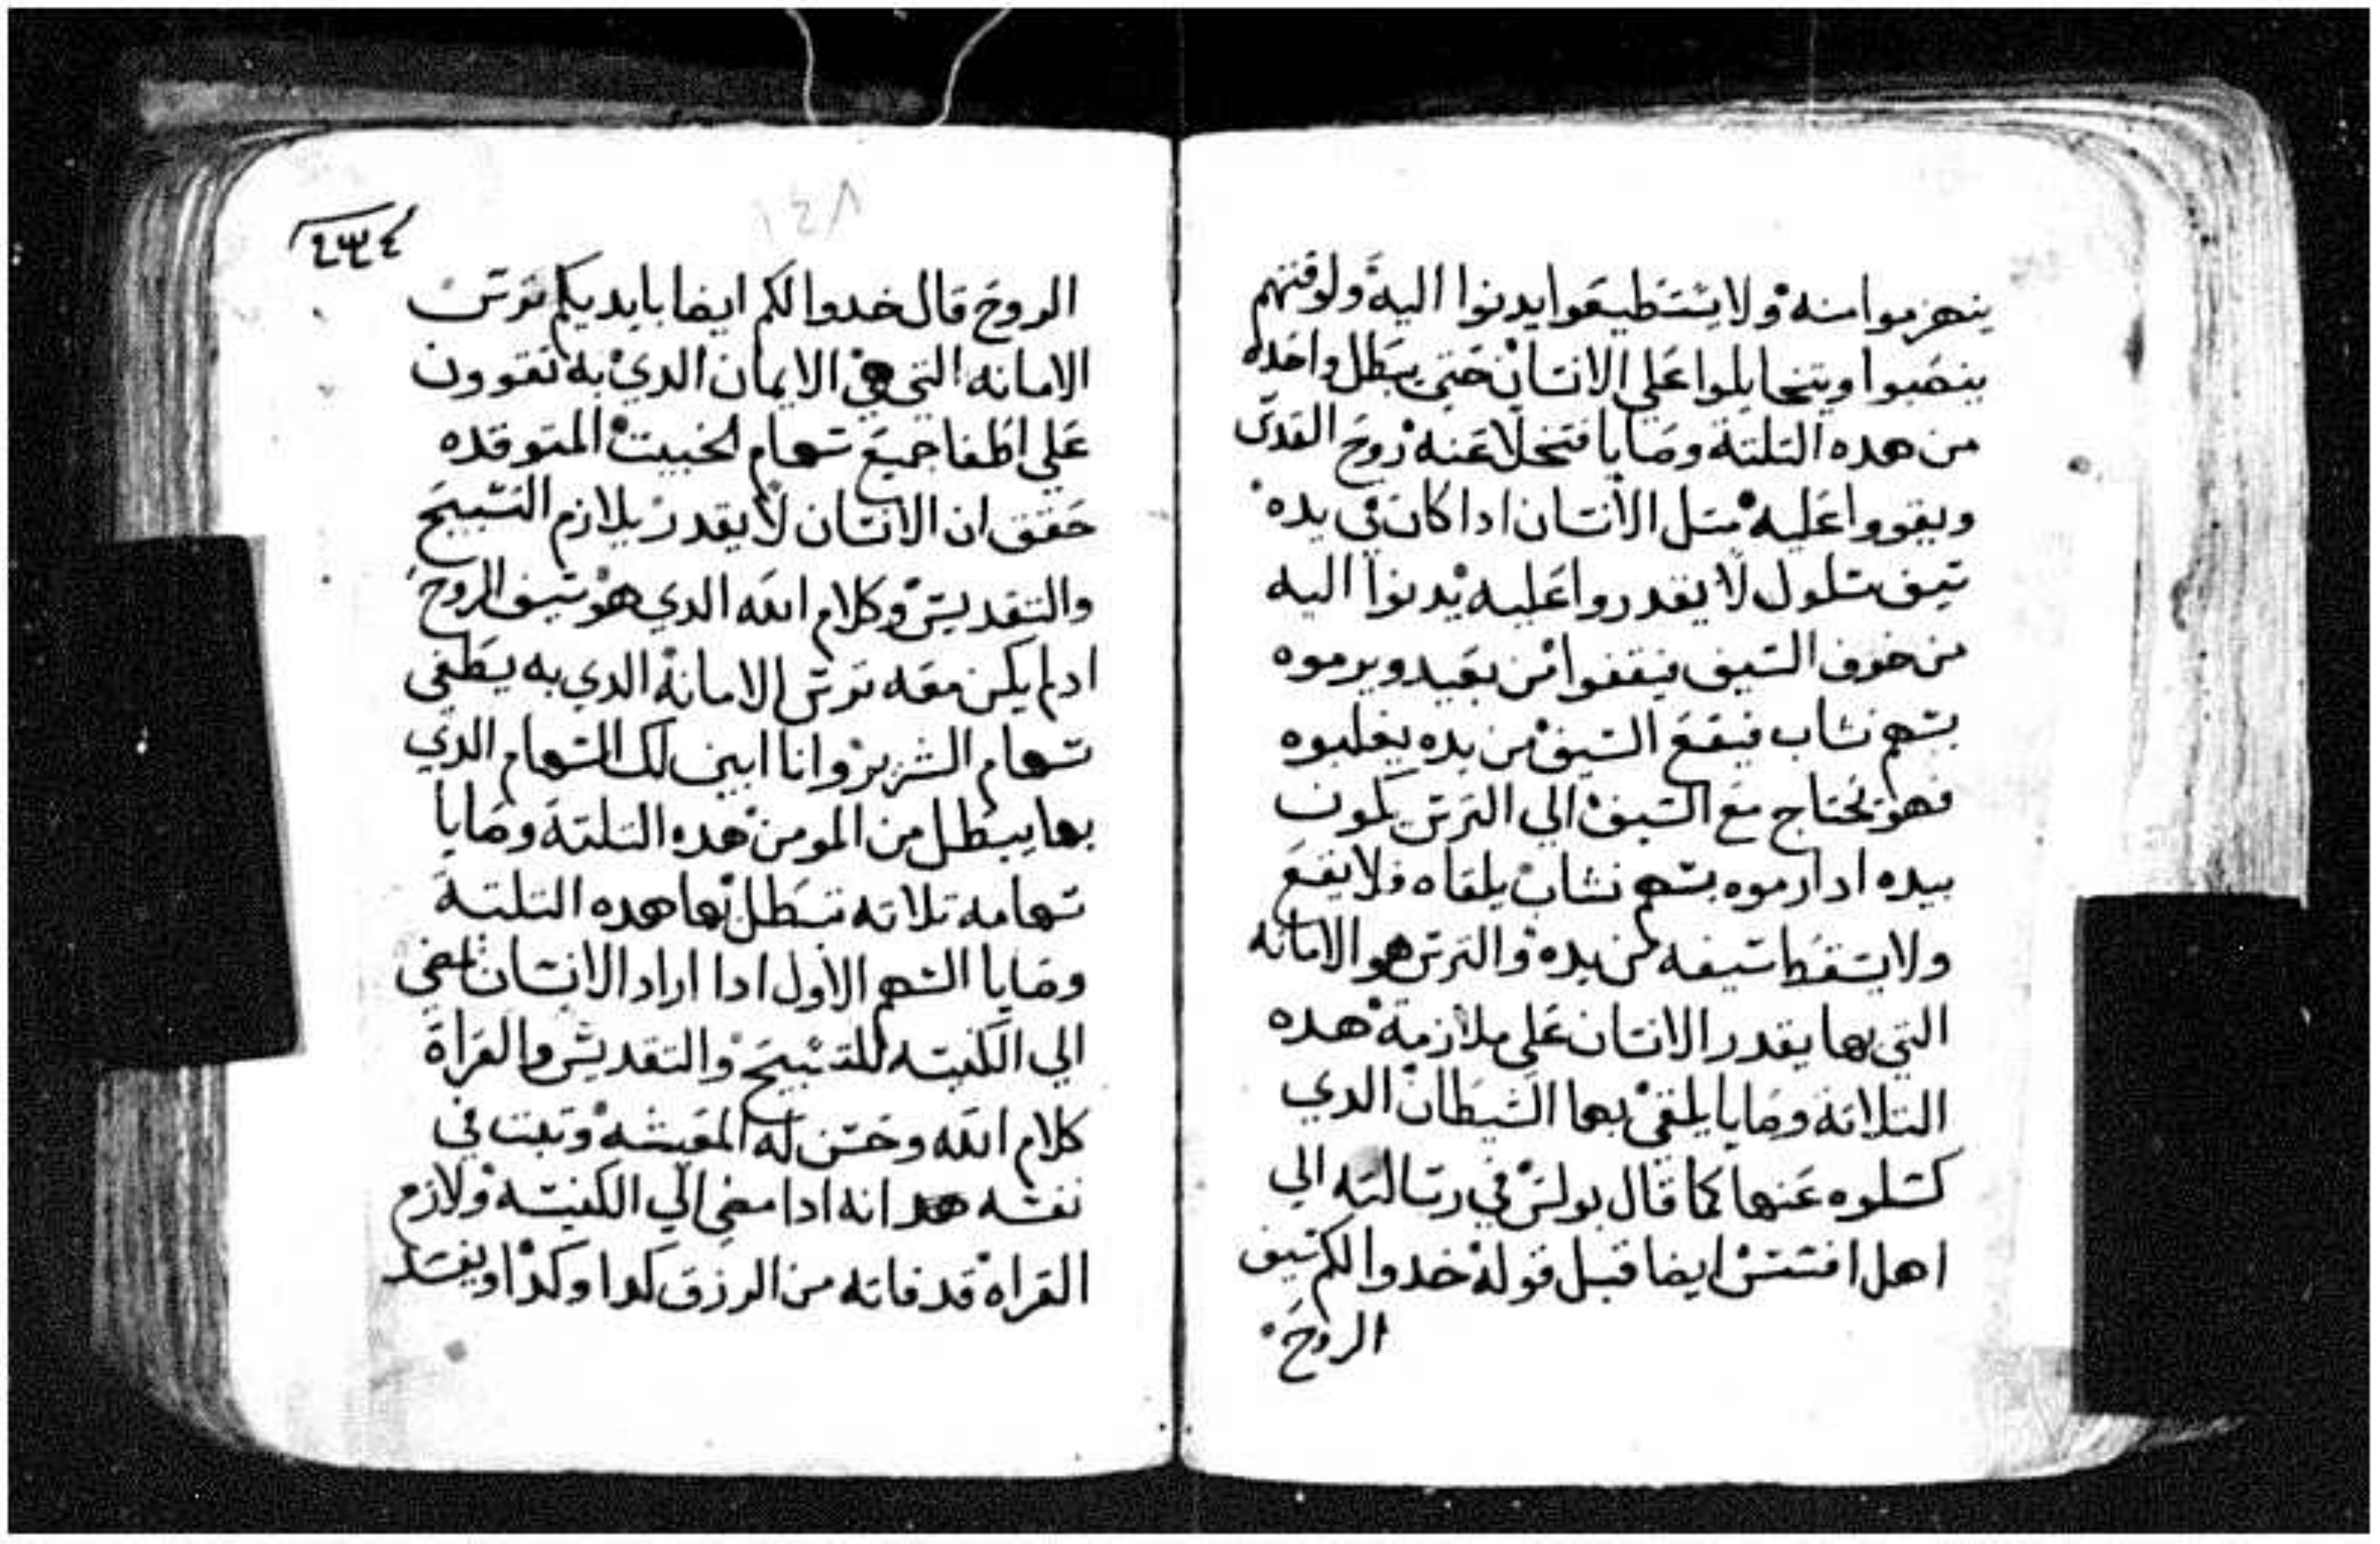 ينهزموا منه ولا يستطيعوا يدنوا اليه ولوقتهم
ينصبوا ويتحايلوا علي الانسان حتي يبطل واحده
من هده التلتة وصايا فتخلا عنه روح القدس
ويقووا عليه متل الانسان ادا كان في يده
سيف مسلول لا يقدروا عليه يدنوا اليه
من خوف السيف فيقفوا من بعيد ويرموه
بسهم نشاب فيقع السيف من يده يغلبوه
فهو يحتاج مع السيف الي الترس يكون
بيده ادا رموه بسهم نشاب يلقاه فلا يقع
ولا يسقط سيفه من يده والترس هو الامانه
التي بها يقدر الانسان علي ملازمة هده
التلاتة وصايا يلقي بها الشيطان الدي
كسلوه عنها كما قال بولس في رسالته الي
اهل افسس ايضا قبل قوله خدوا لكم سيف
الروح
٢٣٤
١٤٨
الروح قال خدوا لكم ايضا بايديكم ترس
الامانه التي هي الايمان الدي به تقوون
علي اطفا جميع سهام الخبيت المتوقده
حقق ان الانسان لا يقدر يلازم التسبيح
والتقديس وكلام الله الدي هو سيف الروح
ادلم يكن معه ترس الامانة الدي به يطفي
سهام الشرير وانا ابين لك السهام الدي
بها يبطل من المومن هده التلتة وصايا
سهامه تلاته تبطل بها هده التلتة
وصايا السهم الاول ادا اراد الانسان يمضي
الي الكنيسه للتسبيح والتقديس والقراة
كلام الله وحسن له المعيشه وتبت في
نفسه هدا انه ادا مضي الي الكنيسه ولازم
القراه قد فاته من الرزق كدا وكدا ويفسد